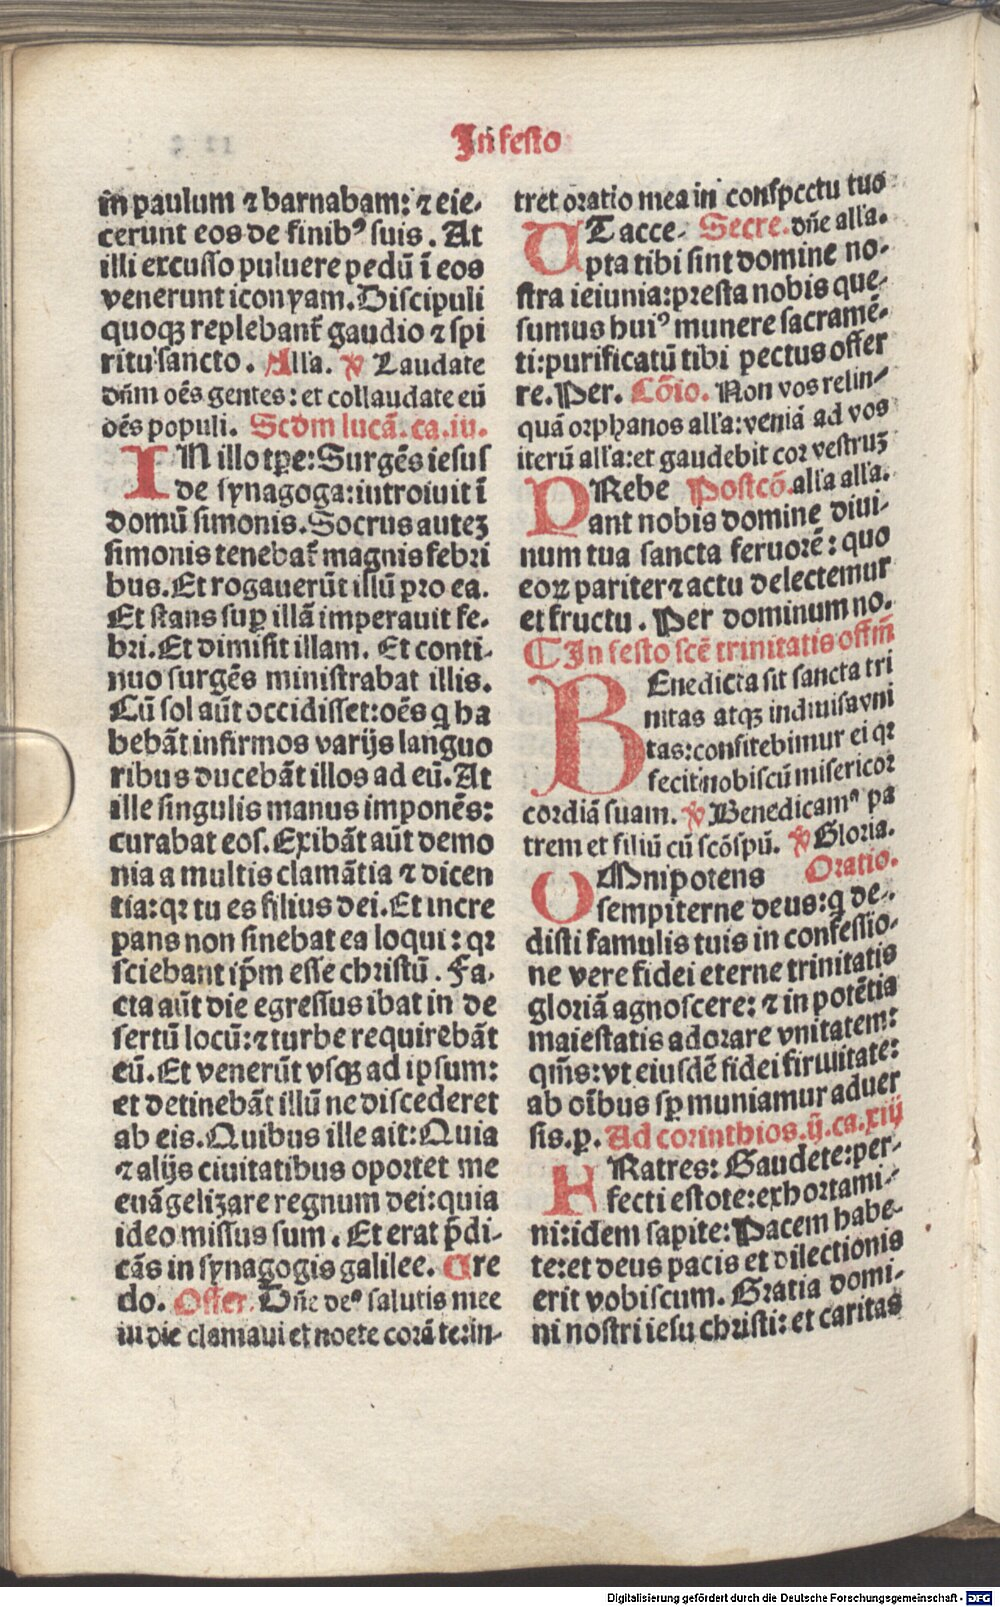 In festo
in paulum ⁊ barnabam: ⁊ eie-
cerunt eos de finibꝰ suis. At
illi excusso puluere pedū ī eos
venerunt iconyam. Discipuli
quoqꝫ replebant᷑ gaudio ⁊ spi
ritu sancto. Alla. ℣ Laudate
dn̄m oēs gentes: et collaudate eū
oēs populi. Scdm lucā. ca. iiij.
IN illo tꝑe: Surgēs iesus
de synagoga: introiuit ī
domū simonis. Socrus auteꝫ
simonis tenebat᷑ magnis febri
bus. Et rogauerūt illū pro ea.
Et stans suꝑ illā imperauit fe-
bri. Et dimisit illam. Et conti-
nuo surgēs ministrabat illis.
Cū sol aūt occidisset: oēs q̄ ha
bebāt infirmos varijs languo
ribus ducebāt illos ad eū. At
ille singulis manus imponēs:
curabat eos. Exibāt aūt demo
nia a multis clamātia ⁊ dicen
tia: qꝛ tu es filius dei. Et incre
pans non sinebat ea loqui: qꝛ
sciebant ip̄m esse christū. Fa-
cta aūt die egressus ibat in de
sertū locū: ⁊ turbe requirebāt
eū. Et venerūt vsqꝫ ad ipsum:
et detinebāt illū ne discederet
ab eis. Quibus ille ait: Quia
⁊ alijs ciuitatibus oportet me
euāgelizare regnum dei: quia
ideo missus sum. Et erat p̄di-
cās in synagogis galilee. Cre
do. Offer. Dn̄e deꝰ salutis mee
in die clamaui et nocte corā te: in-
tret oratio mea in conspectu tuo
UT acce- Secre. dn̄e all'a.
pta tibi sint domine no-
stra ieiunia: presta nobis que-
sumus huiꝰ munere sacramē-
ti: purificatū tibi pectus offer
re. Per. Cōio. Non vos relin-
quā orphanos all'a: veniā ad vos
iterū all'a: et gaudebit cor vestruꝫ
PRebe Postcō. all'a all'a.
ant nobis domine diui-
num tua sancta feruorē: quo
eoꝝ pariter ⁊ actu delectemur
et fructu. Per dominum no.
¶ In festo scē trinitatis offm̄
BEnedicta sit sancta tri
nitas atqꝫ indiuisa vni
tas: confitebimur ei qꝛ
fecit nobiscū misericor
cordiā suam. ℣ Benedicamꝰ pa
trem et filiū cū scō spū. ℣ Gloria.
OMnipotens Oratio.
sempiterne deus: q̄ de-
disti famulis tuis in confessio-
ne vere fidei eterne trinitatis
gloriā agnoscere: ⁊ in potētia
maiestatis adorare vnitatem:
qm̄s: vt eiusdē fidei firmitate:
ab oībus sꝑ muniamur aduer
sis. p. Ad corinthios. ij. ca. xiij
FRatres: Gaudete: per-
fecti estote: exhortami-
ni: idem sapite: Pacem habe-
te: et deus pacis et dilectionis
erit vobiscum. Gratia domi-
ni nostri iesu christi: et caritas
Digitalisierung gefördert durch die Deutsche Forschungsgemeinschaft - DFG